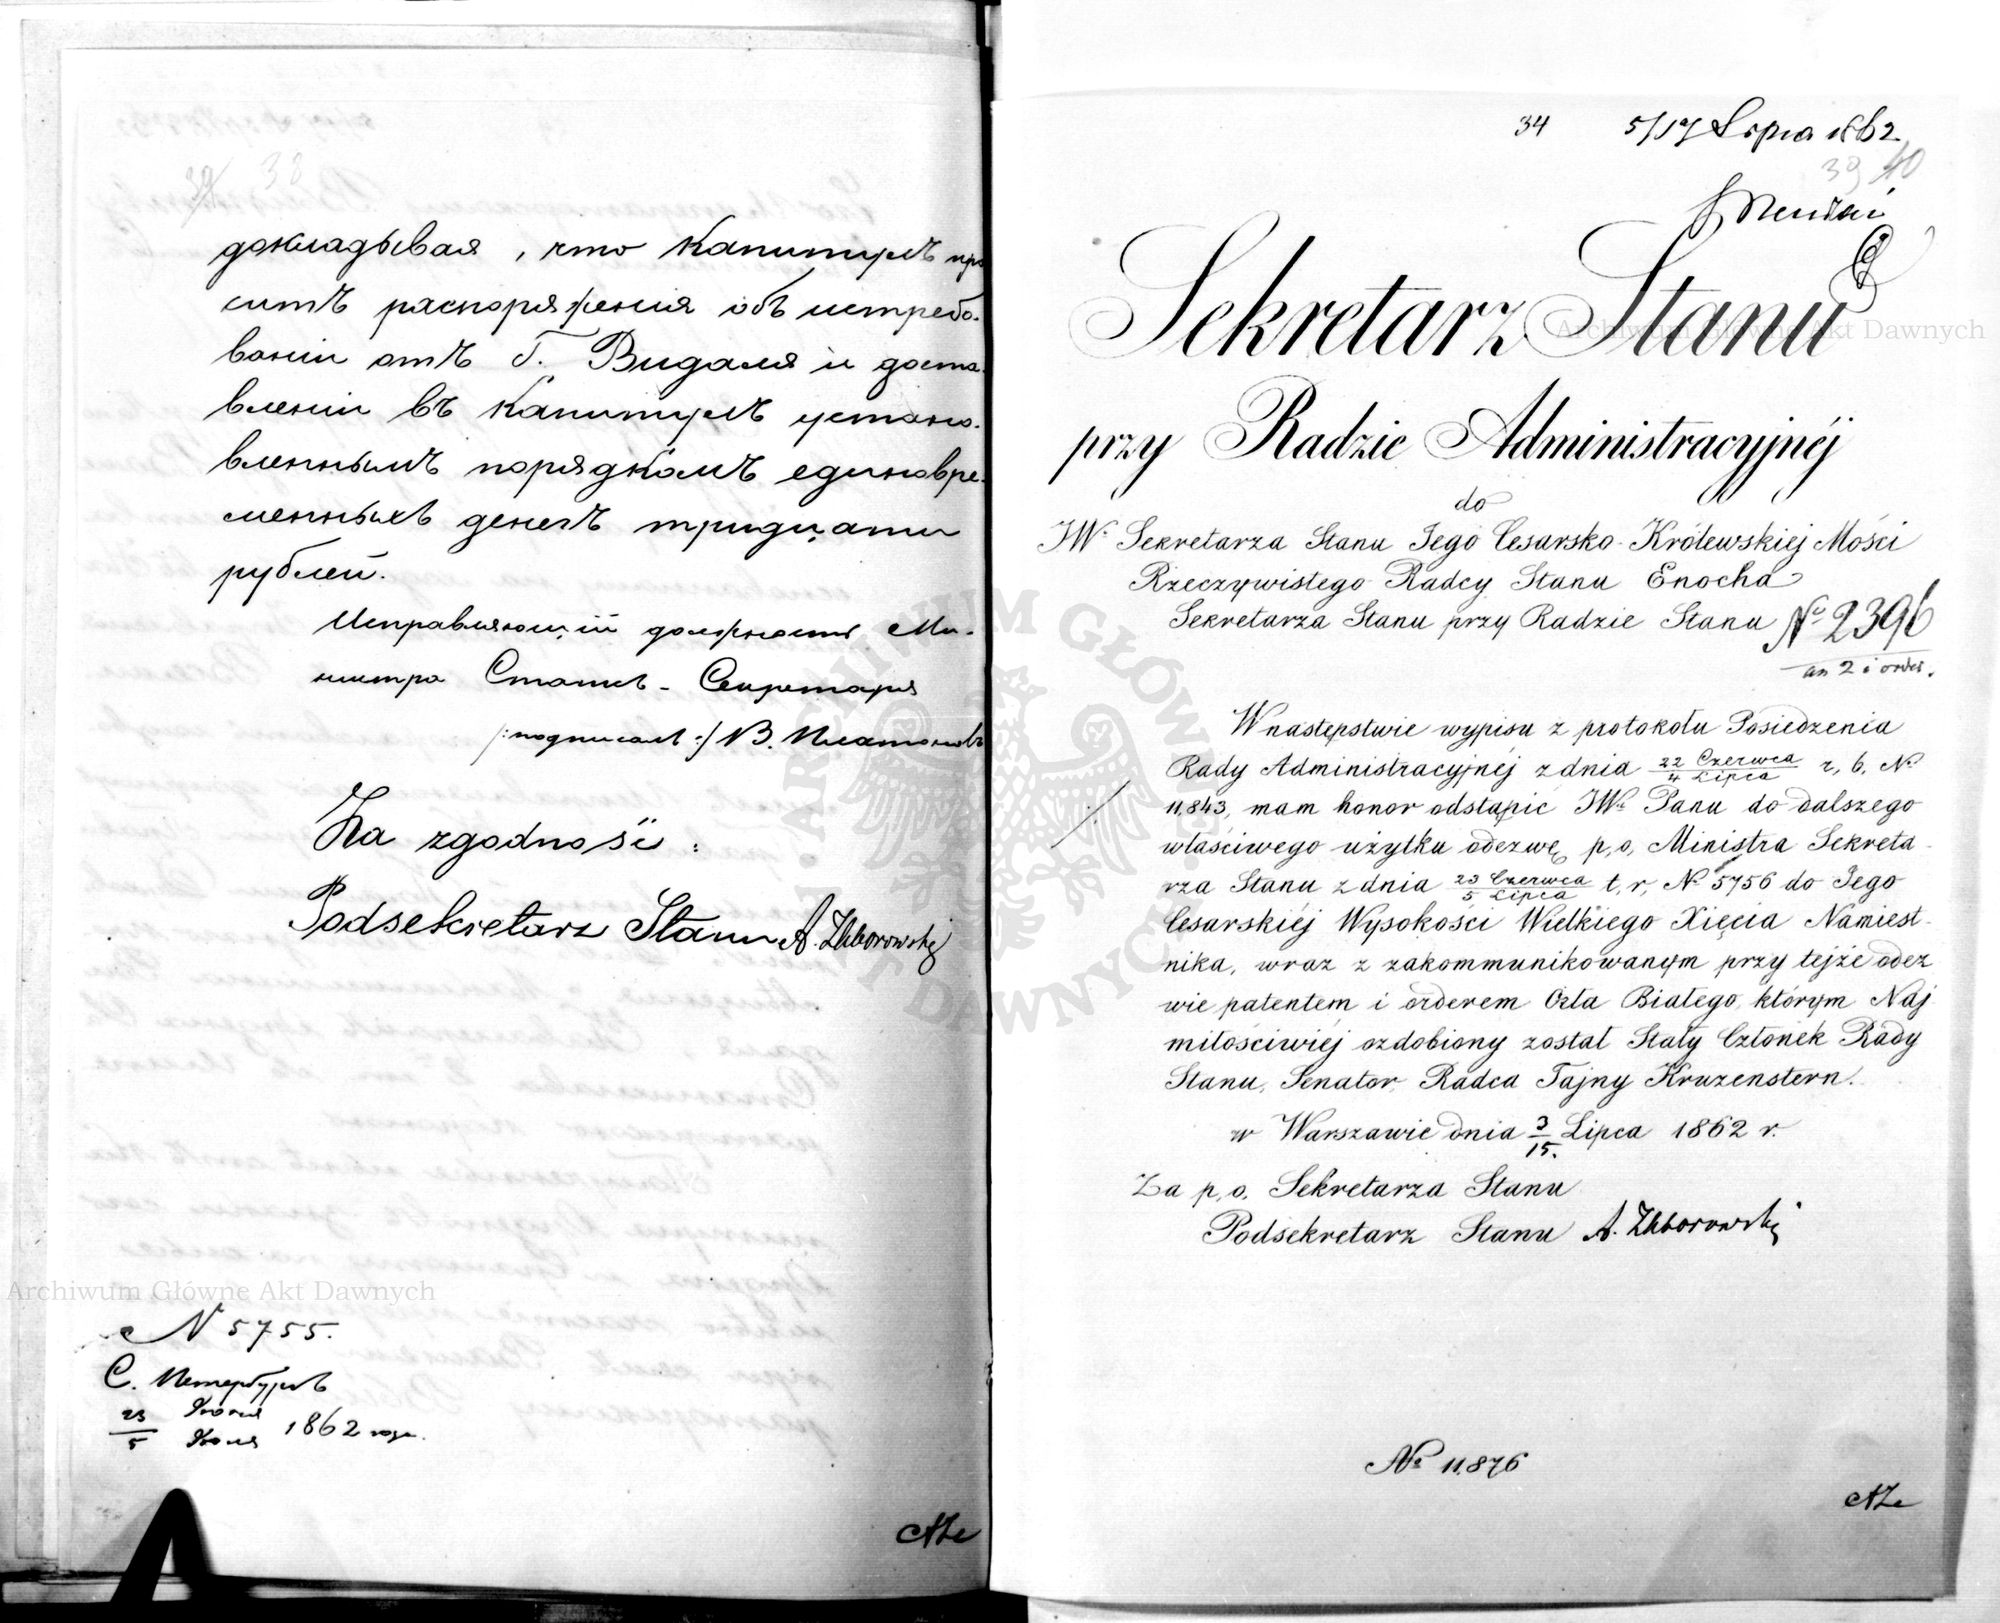 38
докладывая, что Капитулъ про
ситъ распоряженія объ истребо-
ваніи отъ Г. Видаля и доста-
вленіи въ Капитулъ устано-
вленнымъ порядкомъ единовре-
менныхъ денегъ тридцати
рублей.
Исправляющій должность Ми-
нистра Статсъ-Секретаря
/:подписалъ:/ В. Платоновъ
Za zgodność:
Podsekretarz Stanu A. Zaborowski
N 5755.
С. Петербургъ
23 Іюня
5 Іюля 1862 года.
34 5/17 Lipca 1862
39 40
Sekretarz Stanu
przy Radzie Administracyjnéj
do
JW. Sekretarza Stanu Jego Cesarsko-Królewskiej Mości
Rzeczywistego Radcy Stanu Enocha
Sekretarza Stanu przy Radzie Stanu No 2396
W następstwie wypisu z protokołu Posiedzenia
Rady Administracyjnéj z dnia 22 Czerwca / 4 Lipca r, b, No
11,843, mam honor odstąpić JW. Panu do dalszego
właściwego użytku odezwę p, o, Ministra Sekreta-
rza Stanu z dnia 23 Czerwca / 5 Lipca t, r, No 5756 do Jego
Cesarskiéj Wysokości Wielkiego Xięcia Namiest-
nika, wraz z zakommunikowanym przy tejże odez
wie patentem i orderem Orła Białego, którym Naj
miłościwiéj ozdobiony został Stały Członek Rady
Stanu, Senator, Radca Tajny Kruzenstern.
w Warszawie dnia 3/15. Lipca 1862 r.
Za p, o, Sekretarza Stanu
Podsekretarz Stanu A. Zaborowski
No 11,876
Archiwum Główne Akt Dawnych
Archiwum Główne Akt Dawnych
ARCHIWUM GŁÓWNE AKT DAWNYCH